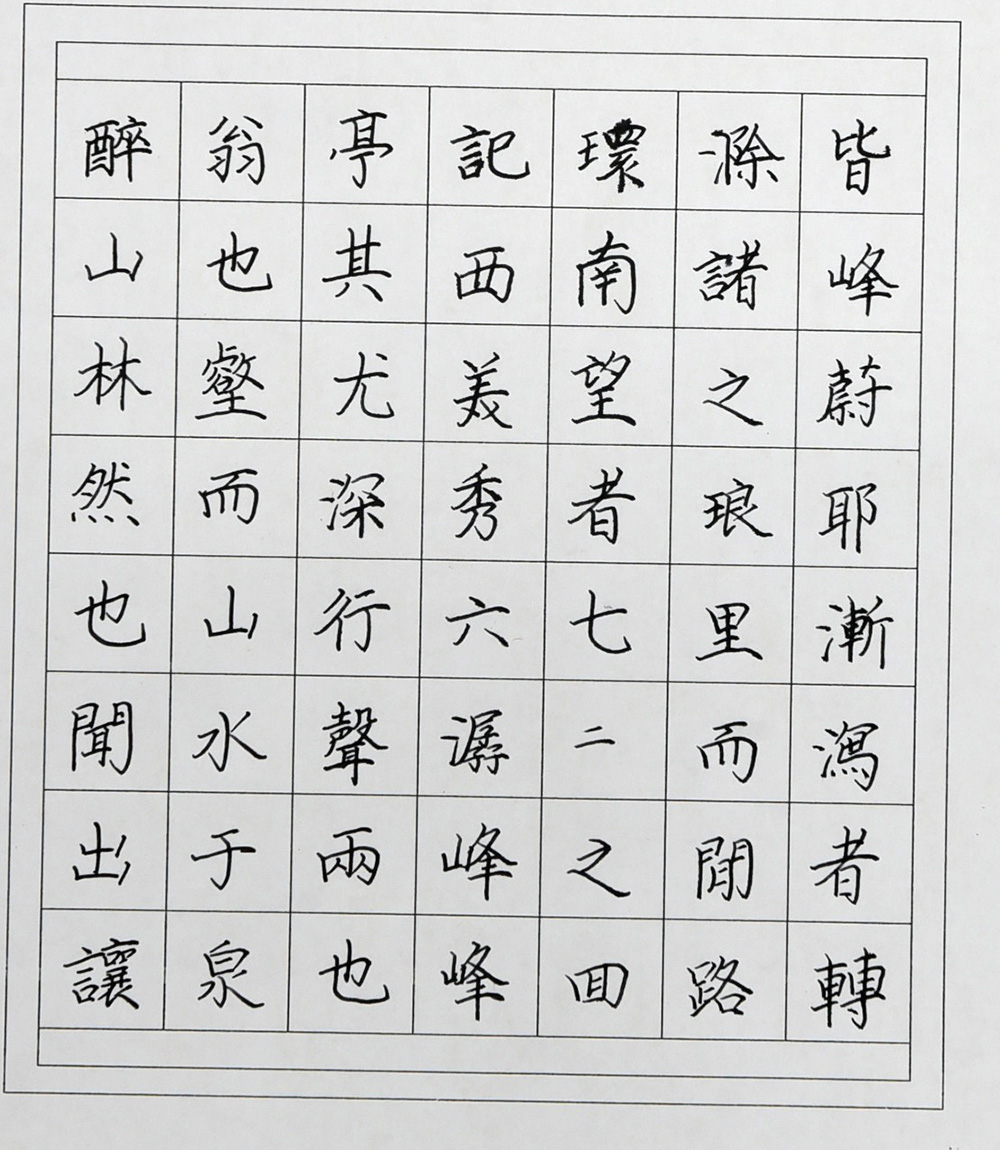 醉翁亭記環滁皆
山也其西南諸峰
林壑尤美望之蔚
然而深秀者琅耶
也山行六七里漸
聞水聲潺二而瀉
出于兩峰之閒者
讓泉也峰囬路轉